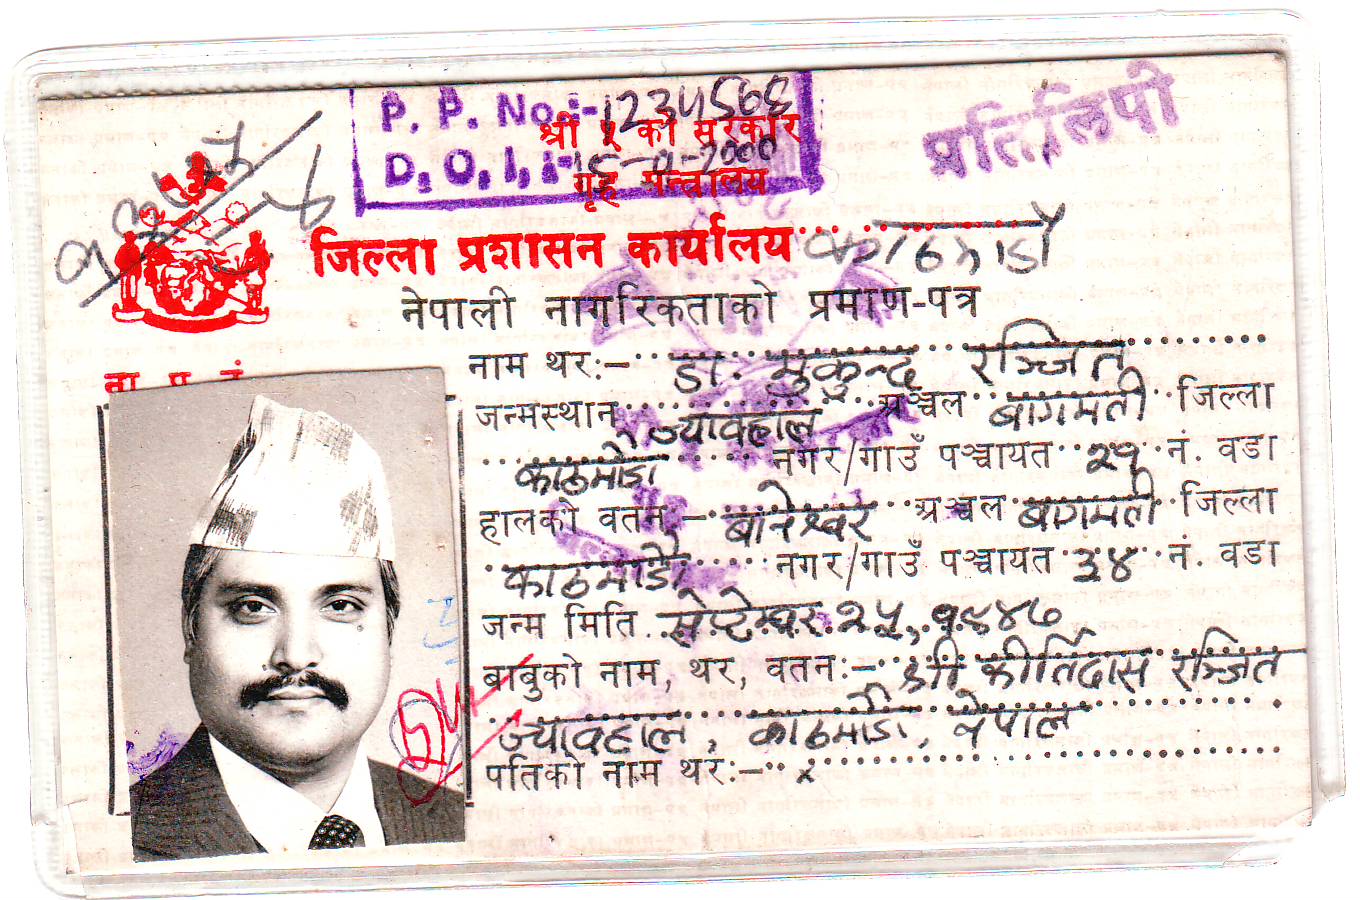 P. P. No.:- 1234568
श्री ५ को सरकार
प्रतिलिपी
D. O. I. :- 15-9-2000
गृह मन्त्रालय
जिल्ला प्रशासन कार्यालय काठमाडौं
नेपाली नागरिकताको प्रमाण-पत्र
ना. प्र. नं.
नाम थर:- डा. मुकुन्द रञ्जित
जन्मस्थान ज्यावहाल अञ्चल बागमती जिल्ला
काठमाडौं नगर/गाउँ पञ्चायत २१ नं. वडा
हालको वतन :- बानेश्वर अञ्चल बागमती जिल्ला
काठमाडौं नगर/गाउँ पञ्चायत ३४ नं. वडा
जन्म मिति सेप्टेम्बर २५, १९४७
बाबुको नाम, थर, वतन:- श्री कीर्तिदास रञ्जित
ज्यावहाल, काठमाडौं, नेपाल
पतिको नाम थर:- x